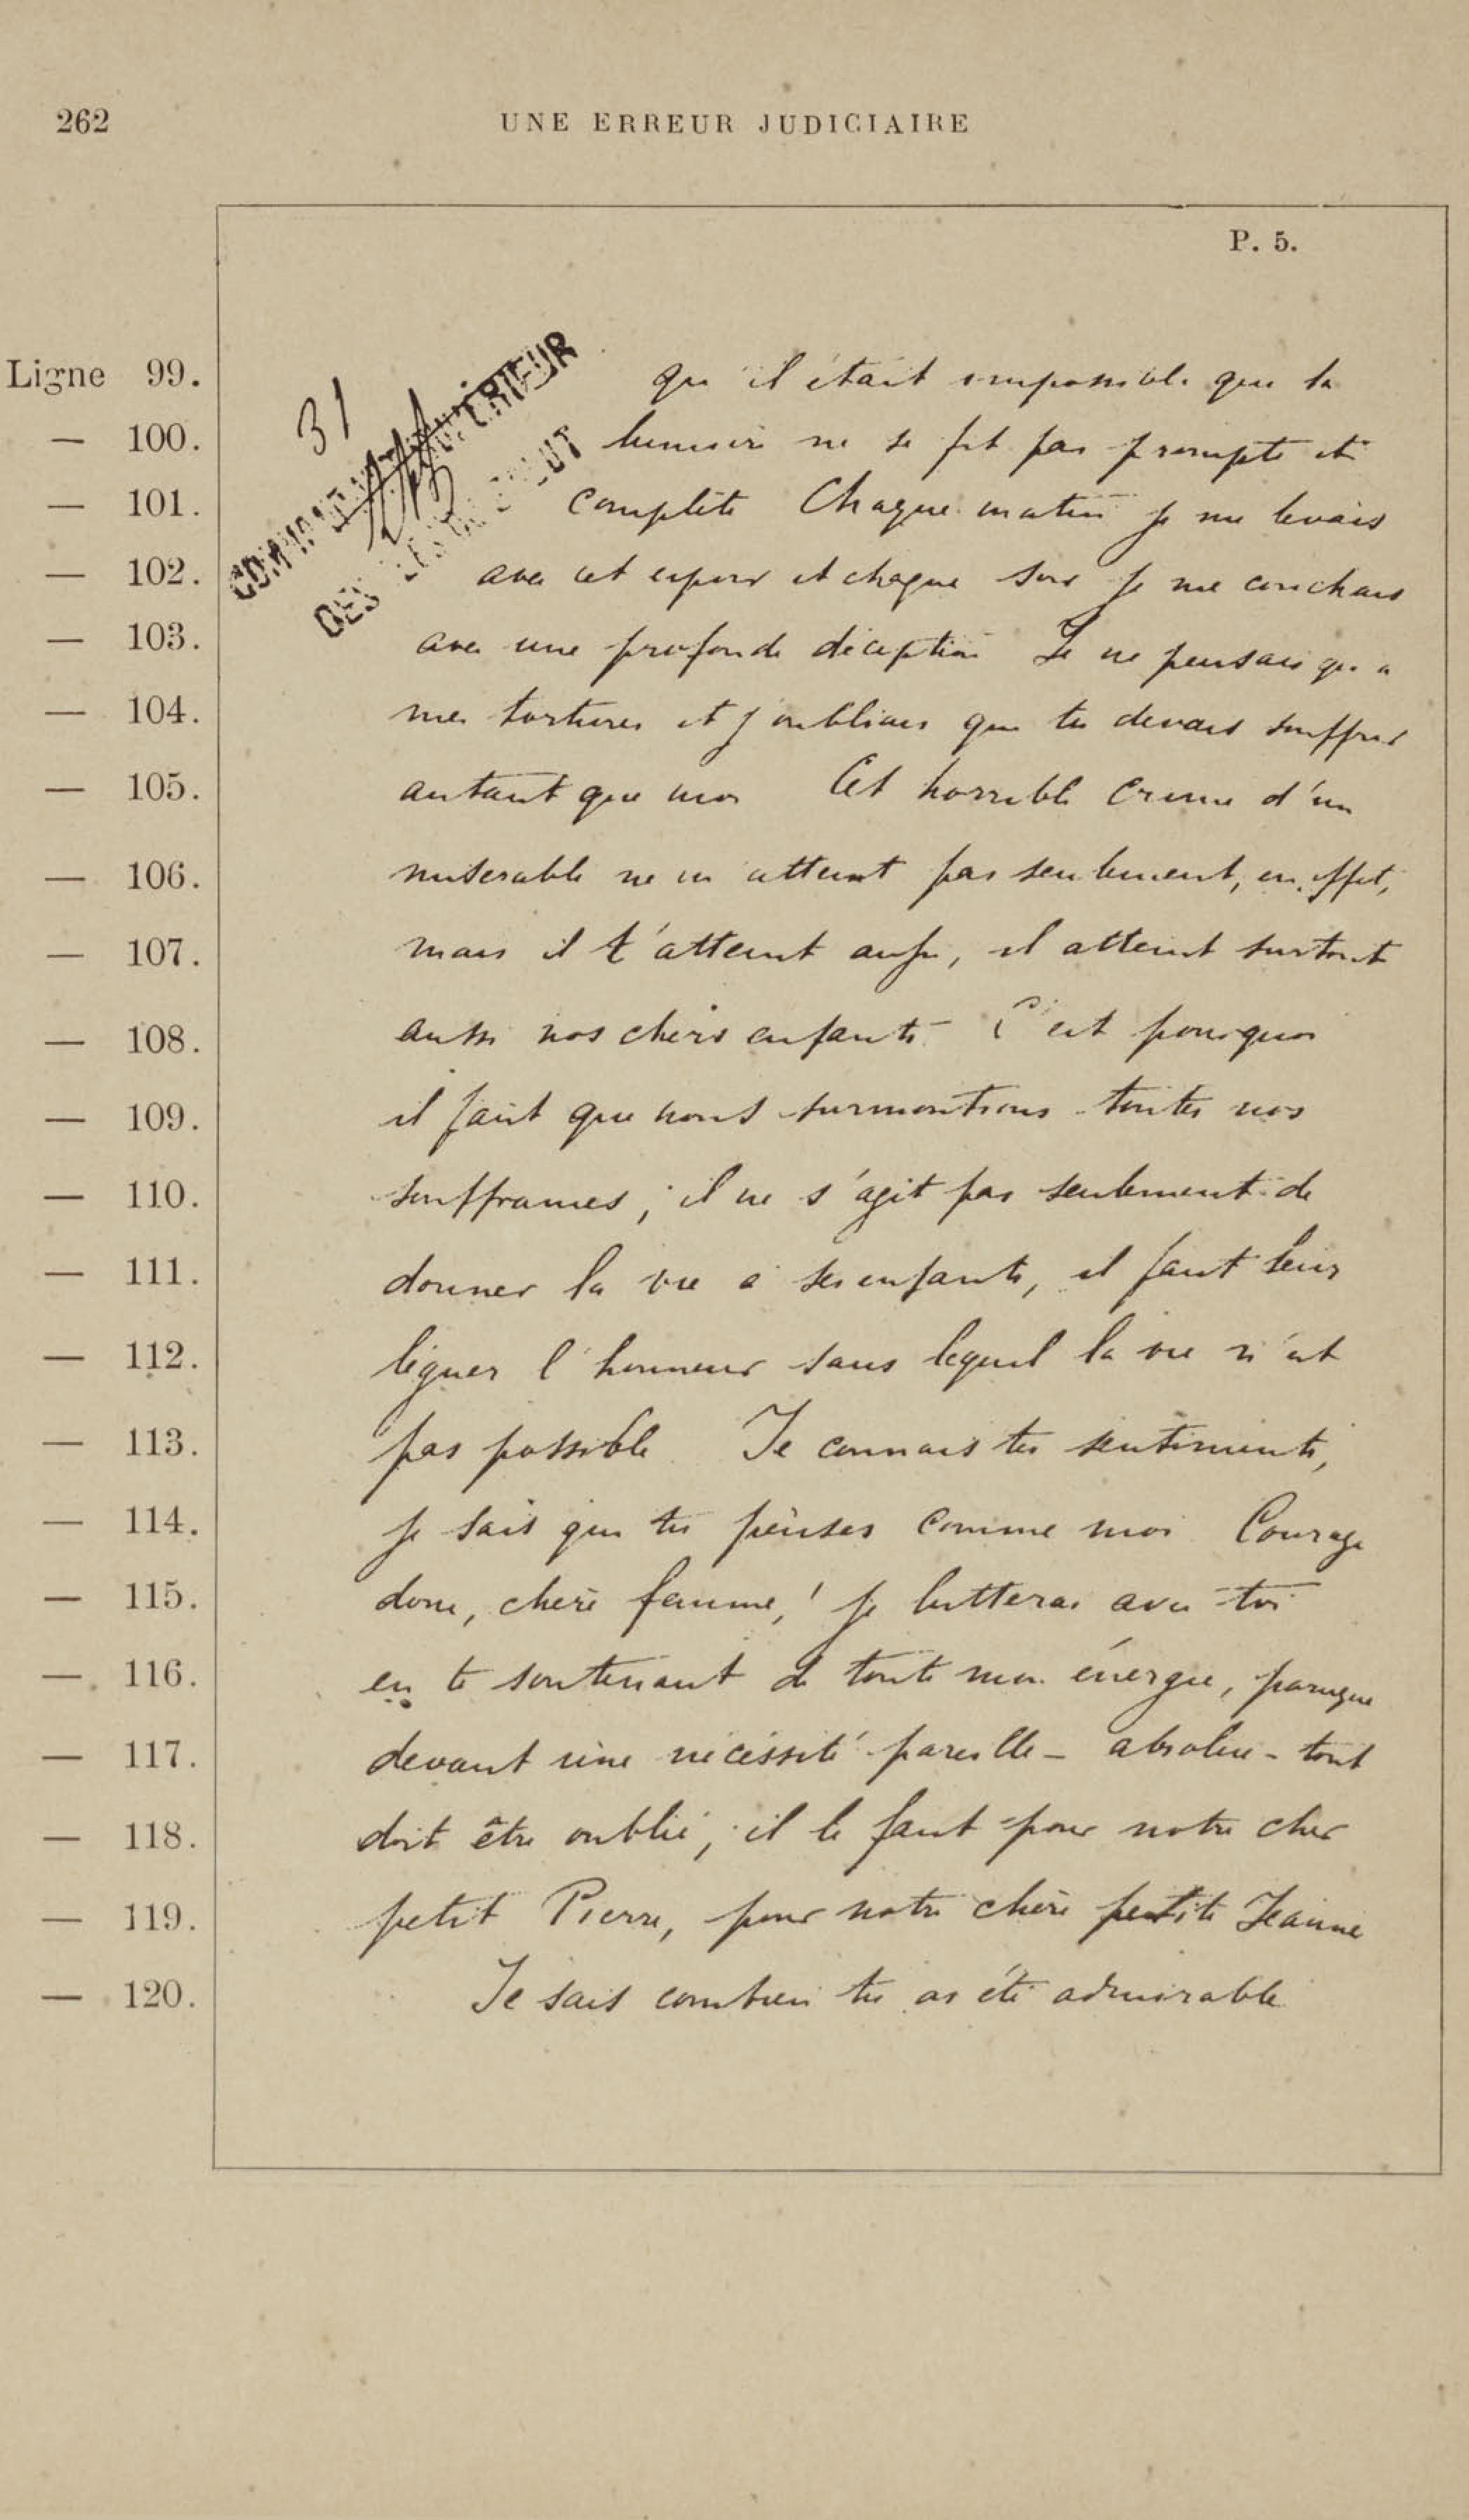 262
UNE ERREUR JUDICIAIRE
P. 5.
31
COMMANDANT SUPÉRIEUR
DES ILES DU SALUT
Ligne 99. qu'il était impossible que la
— 100. lumière ne se fit pas prompte et
— 101. complète Chaque matin je me levais
— 102. avec cet espoir et chaque soir je me couchais
— 103. avec une profonde déception Je ne pensais qu'a
— 104. mes tortures et j'oubliais que tu devais souffrir
— 105. autant que moi Cet horrible crime d'un
— 106. miserable ne m'atteint pas seulement, en effet,
— 107. mais il t'atteint aussi, il atteint surtout
— 108. aussi nos chers enfants. C'est pourquoi
— 109. il faut que nous surmontions toutes nos
— 110. souffrances ; il ne s'agit pas seulement de
— 111. donner la vie à ses enfants, il faut leur
— 112. léguer l'honneur sans lequel la vie n'est
— 113. pas possible Je connais tes sentiments,
— 114. je sais que tu penses comme moi Courage
— 115. donc, chère femme, ! je lutterai avec toi
— 116. en te soutenant de toute mon énergie, parceque
— 117. devant une nécessité pareille – absolue – tout
— 118. doit être oublié ; il le faut pour notre cher
— 119. petit Pierre, pour notre chère petite Jeanne
— 120. Je sais combien tu as été admirable